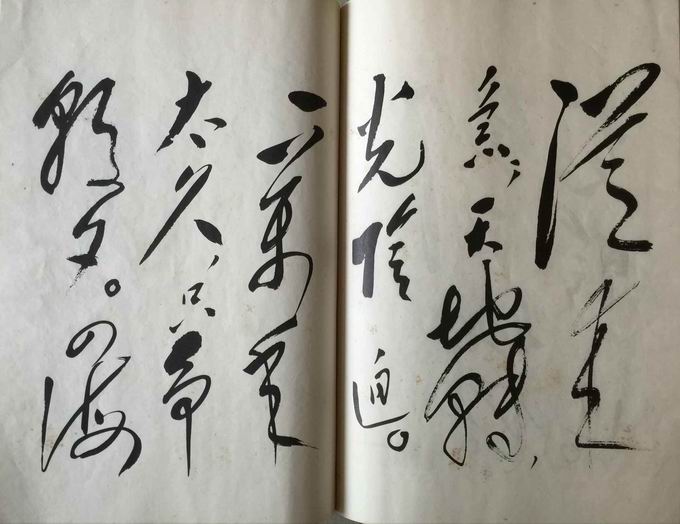 從来
急、天地轉、
光陰迫。
一萬年
太久、只争
朝夕。四海